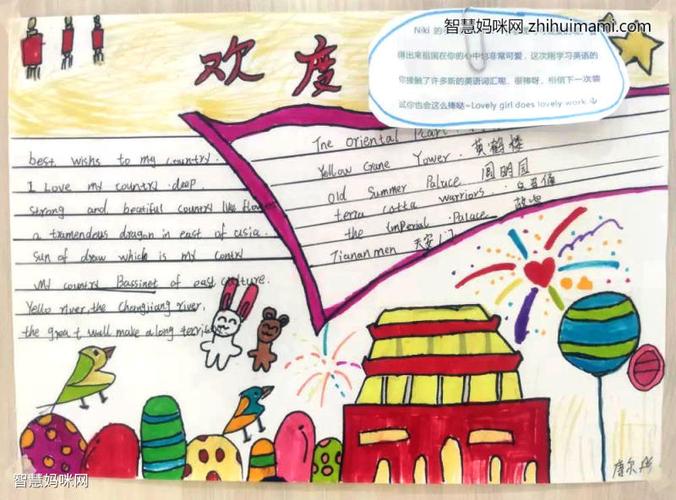 智慧妈咪网 zhihuimami.com
欢度
Niki 的
得出来祖国在你的心中也非常可爱，这次刚学习英语的
你接触了许多新的英语词汇呢，很棒呀，相信下一次尝
试你也会这么棒哒~Lovely girl does lovely work
best wishs to my country.
I Love my country deep.
strong and beatiful country like flower
a tramendous dragon in east of asia.
sun of draw which is my contry
My country Bassinet of east culture.
Yello river, the Changjiang river,
the great wall make a long
The Oriental Pearl
Yellow Crane Tower. 黄鹤楼
Old Summer Palace 圆明园
terra cotta warriors.
the imperial Palace 故宫
Tiananmen 天安门
智慧妈咪网